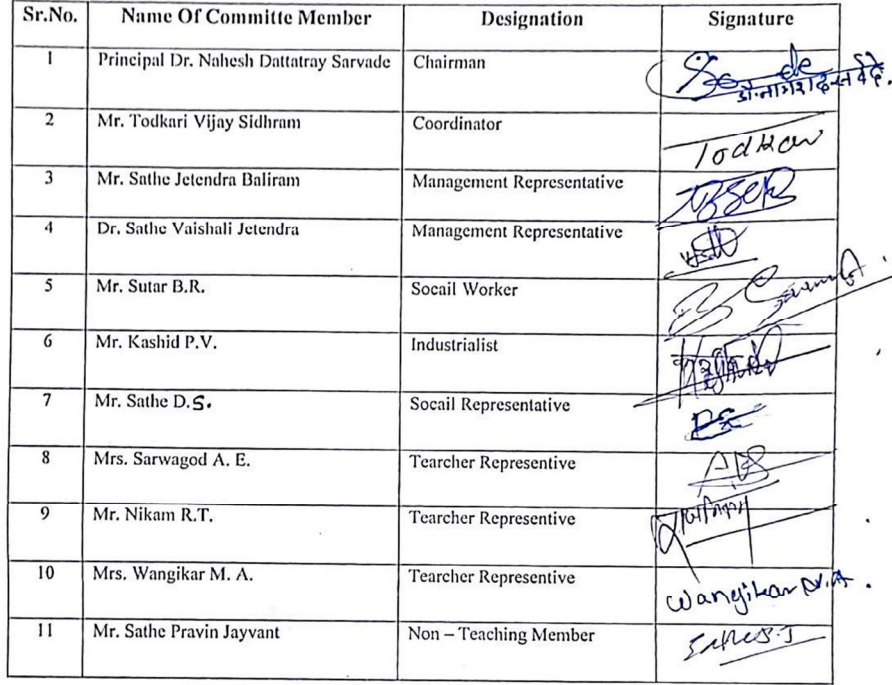 Sr.No. Name Of Committe Member Designation Signature
1 Principal Dr. Nahesh Dattatray Sarvade Chairman
2 Mr. Todkari Vijay Sidhram Coordinator Todkari
3 Mr. Sathe Jetendra Baliram Management Representative
4 Dr. Sathe Vaishali Jetendra Management Representative
5 Mr. Sutar B.R. Socail Worker
6 Mr. Kashid P.V. Industrialist
7 Mr. Sathe D.S. Socail Representative
8 Mrs. Sarwagod A. E. Tearcher Representive
9 Mr. Nikam R.T. Tearcher Representive
10 Mrs. Wangikar M. A. Tearcher Representive Wangikar M.A.
11 Mr. Sathe Pravin Jayvant Non – Teaching Member